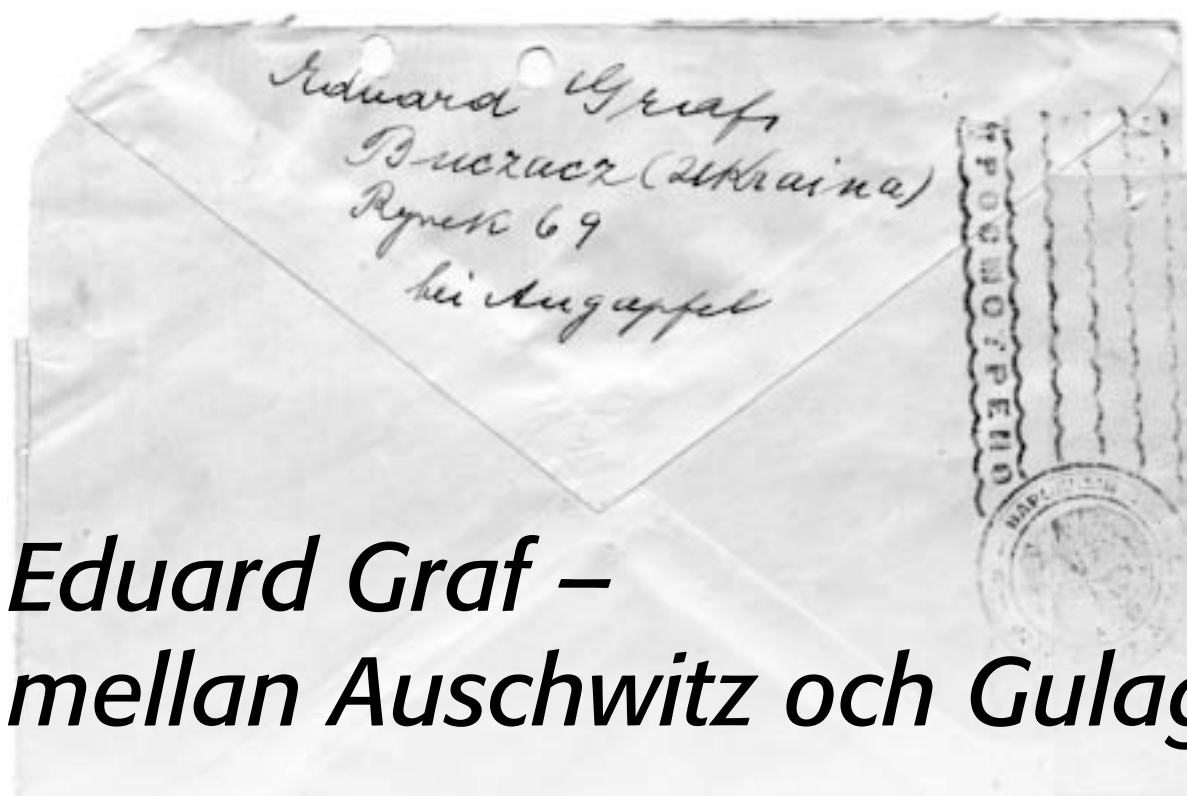 Eduard Graf,
Buczacz (Ukraina)
Rynek 69
bei Augapfel
ПРОСМОТРЕНО
Eduard Graf –
mellan Auschwitz och Gulag